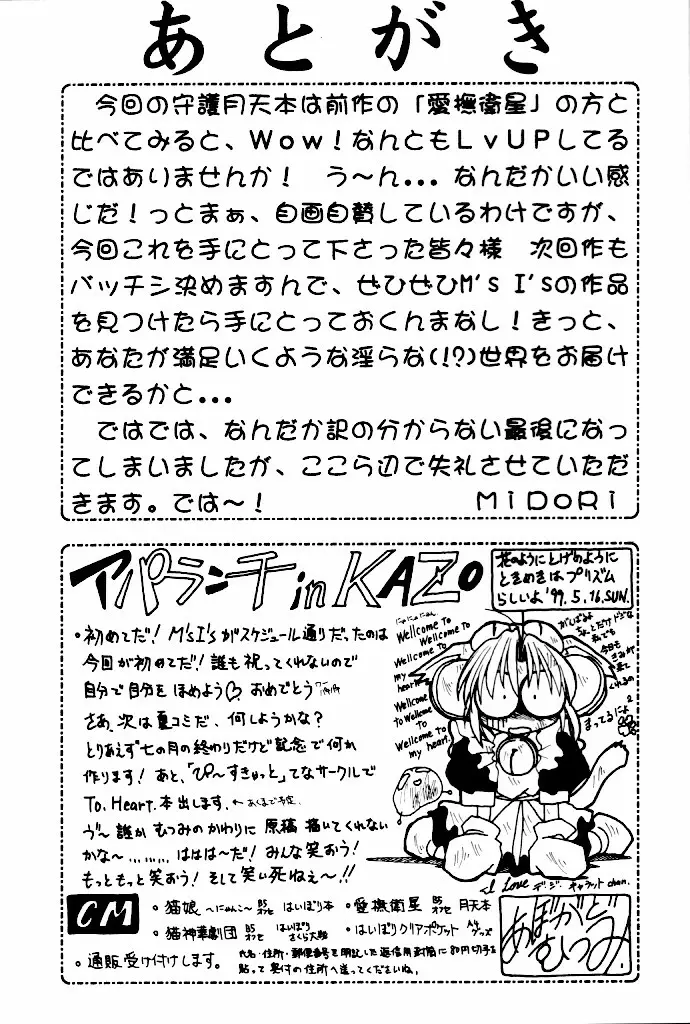 あとがき
今回の守護月天本は前作の「愛撫衛星」の方と
比べてみると、Wow!なんともLvUPしてる
ではありませんか! う〜ん...なんだかいい感
じだ!っとまぁ、自画自賛しているわけですが、
今回これを手にとって下さった皆々様 次回作も
バッチシ決めますんで、ぜひぜひM's I'sの作品
を見つけたら手にとっておくんまなし!きっと、
あなたが満足いくような淫らな(!?)世界をお届け
できるかと...
ではでは、なんだか訳の分からない最後になっ
てしまいましたが、ここら辺で失礼させていただ
きます。では〜! MiDoRi
アパランチ in KAZo
花のようにとげのように
ときめきはプリズム
らしいよ '99.5.16.SUN.
・初めてだ! M'sI'sがスケジュール通りだったのは
今回が初めてだ!誰も祝ってくれないので
自分で自分をほめよう♡ おめでとう
さあ、次は夏コミだ、何しようかな?
とりあえず七の月の終わりだけど記念で何か
作ります!あと、「ぴ〜すきゅっと」てなサークルで
To.Heart.本出します. ←あくまで予定.
ゔ〜誰かむつみのかわりに原稿描いてくれない
かな〜………ははは〜だ!みんな笑おう!
もっともっと笑おう!そして笑い死ねぇ〜!!
にゃんにゃん.
Wellcome To
Wellcome To
Wellcome To
my heart
Wellcome To
Wellcome To
Wellcome To
my heart.
がんばるよ
ちょとだけドジな
私でも
今日も
きみが
来て
くれるの
まってるによ
I Love デ・ジ・キャラット chan.
CM
・猫娘 〜にゃんこ〜 B5オフセ はいぱり本
・愛撫衛星 B5オフセ 月天本
・猫神華劇団 B5オフセ はいぱりさくら大戦
・はいぱりクリアポケット A4グッズ
・通販受け付けします。 氏名・住所・郵便番号を明記した返信用封筒に80円切手を
貼って奥付の住所へ送ってくださいね.
あぼがど
むつみ!